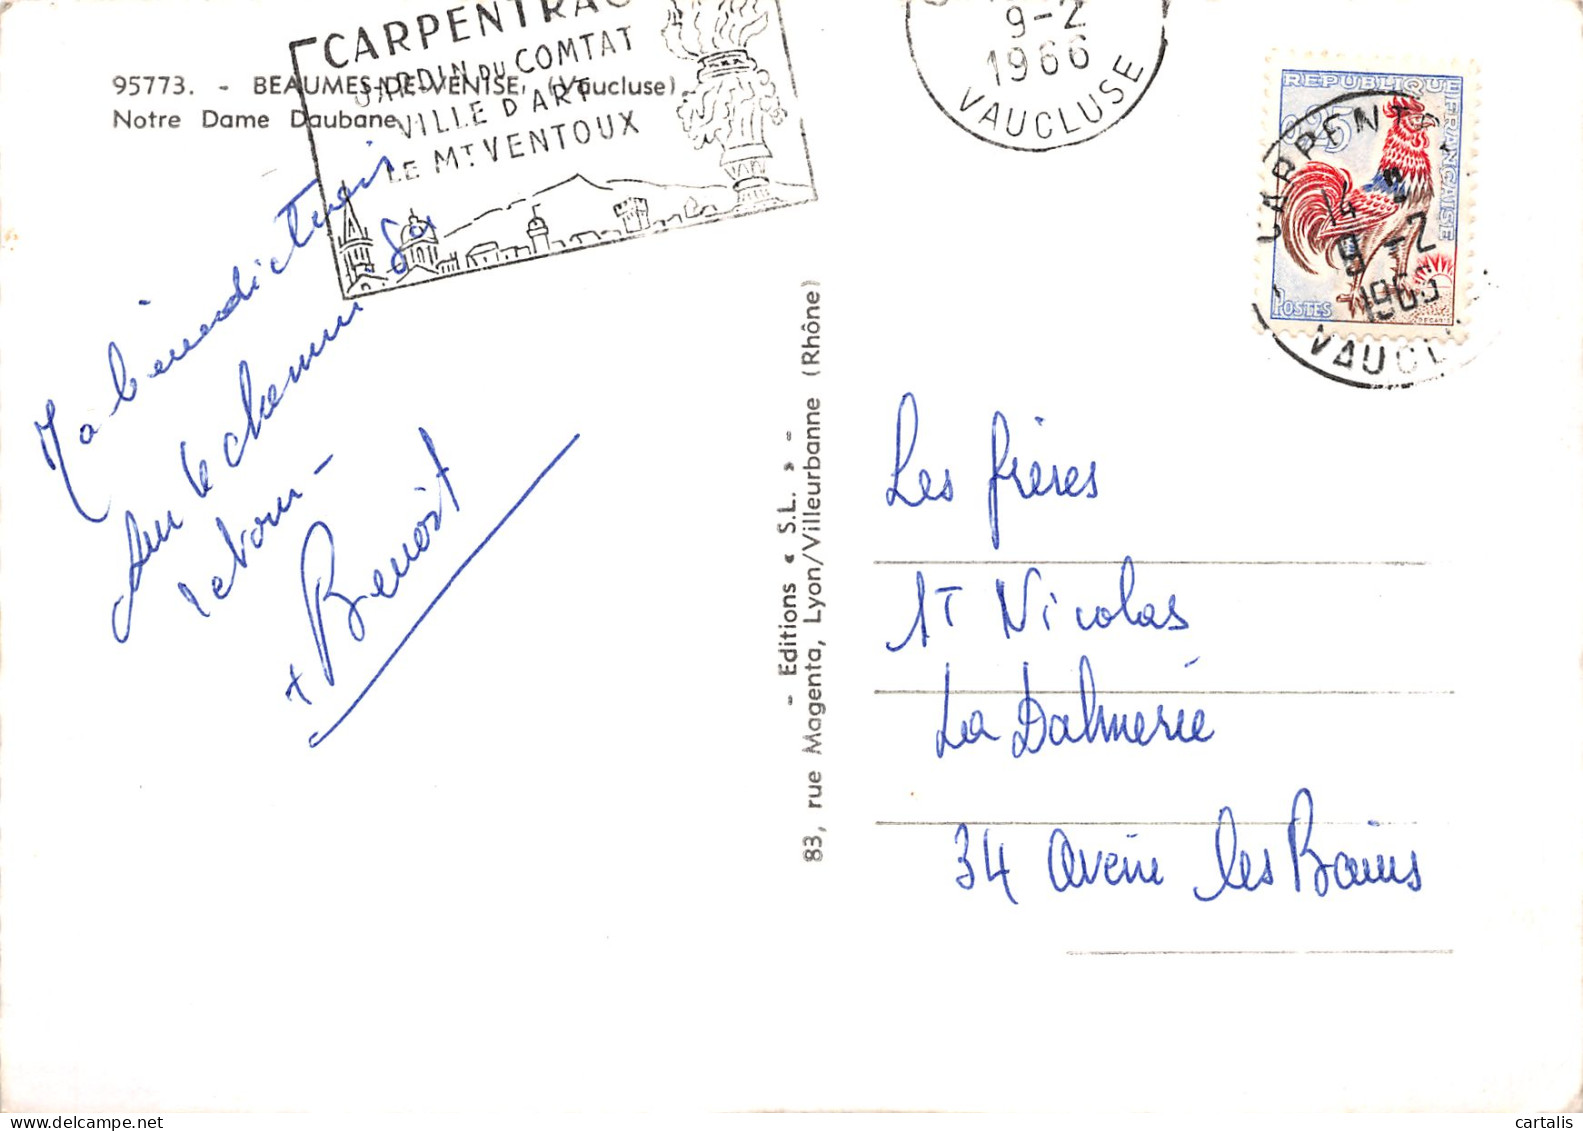 CARPENTRAS
JARDIN DU COMTAT
VILLE D'ART
LE Mᵀ VENTOUX
95773. - BEAUMES-DE-VENISE, (Vaucluse)
Notre Dame Daubane
9-2
1966
VAUCLUSE
REPUBLIQUE FRANÇAISE
0,25
POSTES
CARPENTR
14
9-2
1966
VAUCL
Ma bénédiction
sur le chemin du
retour -
+ Benoît
- Editions « S.L. » -
83, rue Magenta, Lyon/Villeurbanne (Rhône)
Les frères
St Nicolas
La Dalmerie
34 Avène les Bains
cartalis